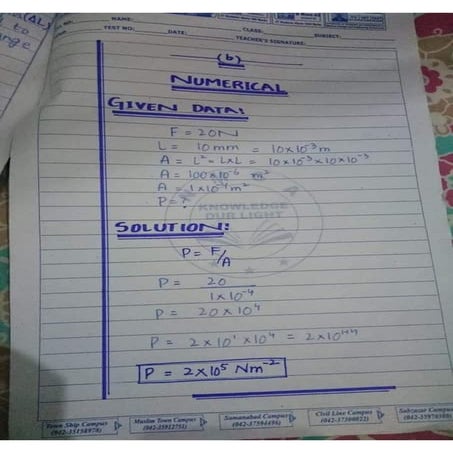 (ΔL)
to
nge
NAME:
CLASS:
TEST NO:
DATE:
SUBJECT:
TEACHER'S SIGNATURE:
(b)
NUMERICAL
GIVEN DATA:
F = 20N
L = 10mm = 10x10⁻³m
A = L² = LXL = 10x10⁻³x10x10⁻³
A = 100x10⁻⁶ m²
A = 1x10⁻⁴m²
P = ?
KNOWLEDGE
OUR LIGHT
SOLUTION:
P = F/A
P = 20 / 1x10⁻⁴
P = 20x10⁴
P = 2x10¹x10⁴ = 2x10¹⁺⁴
P = 2x10⁵ Nm⁻²
Town Ship Campus
(042-35158978)
Muslim Town Campus
(042-35912751)
Samanabad Campus
(042-37594496)
Civil Line Campus
(042-37300822)
Sabzazar Campus